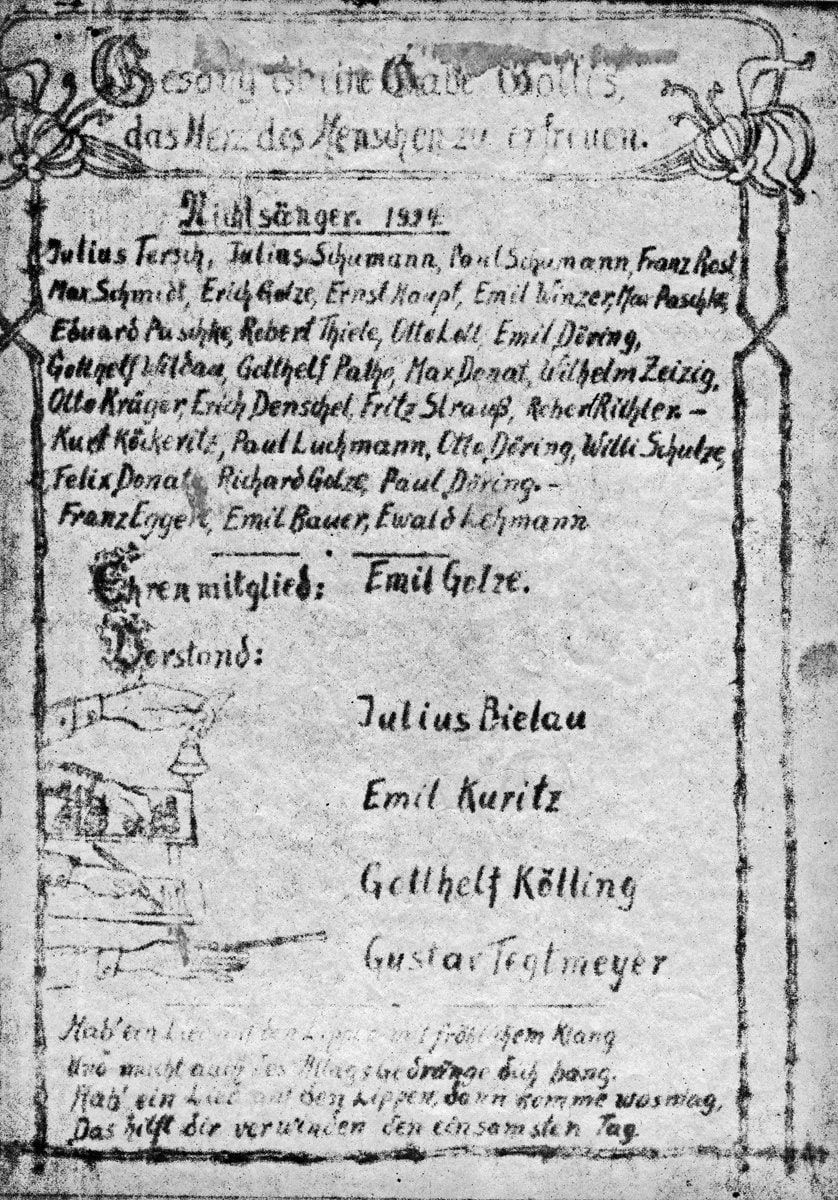 Gesang ist eine Gabe Gottes,
das Herz des Menschen zu erfreuen.
Nichtsänger. 1934
Julius Tersch, Julius Schumann, Paul Schumann, Franz Rost,
Max Schmidt, Erich Golze, Ernst Haupt, Emil Winzer, Max Paschke,
Eduard Paschke, Robert Thiele, Otto Lott, Emil Döring,
Gotthelf Wildau, Gotthelf Pathe, Max Donat, Wilhelm Zeizig,
Otto Krüger, Erich Denschel, Fritz Strauß, Robert Richter. –
Kurt Köckeritz, Paul Luchmann, Otto Döring, Willi Schulze,
Felix Donat, Richard Golze, Paul Döring. –
Franz Eggert, Emil Bauer, Ewald Lehmann
Ehrenmitglied: Emil Golze.
Vorstand:
Julius Bielau
Emil Kuritz
Gotthelf Kölling
Gustav Tegtmeyer
Hab' ein Lied auf den Lippen mit fröhlichem Klang
Und macht auch des Alltags Gedränge dich bang.
Hab' ein Lied auf den Lippen, dann komme was mag,
Das hilft dir verwinden den einsamsten Tag